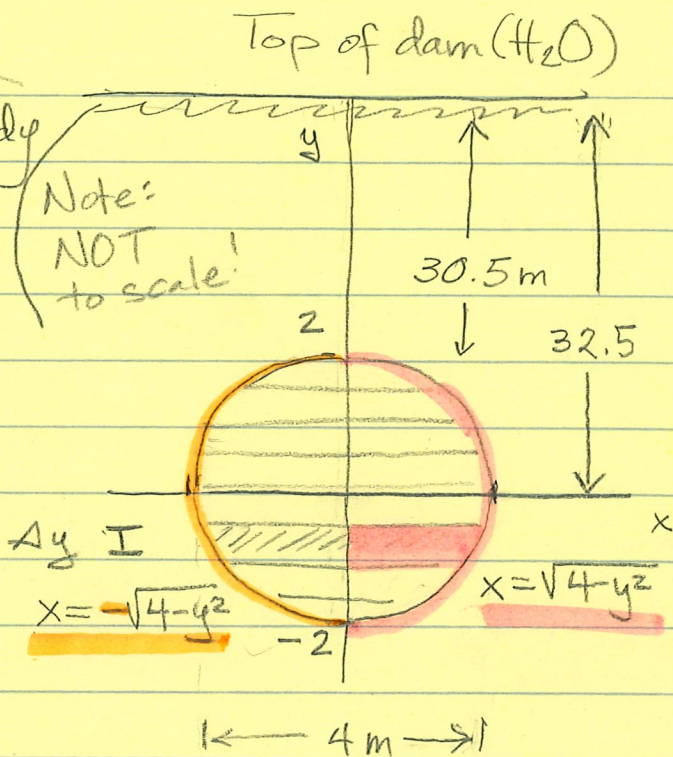 Top of dam (H₂O)
dy
y
Note:
NOT
to scale!
30.5 m
2
32.5
x
Δy I
x = -√4-y²
x = √4-y²
-2
4 m